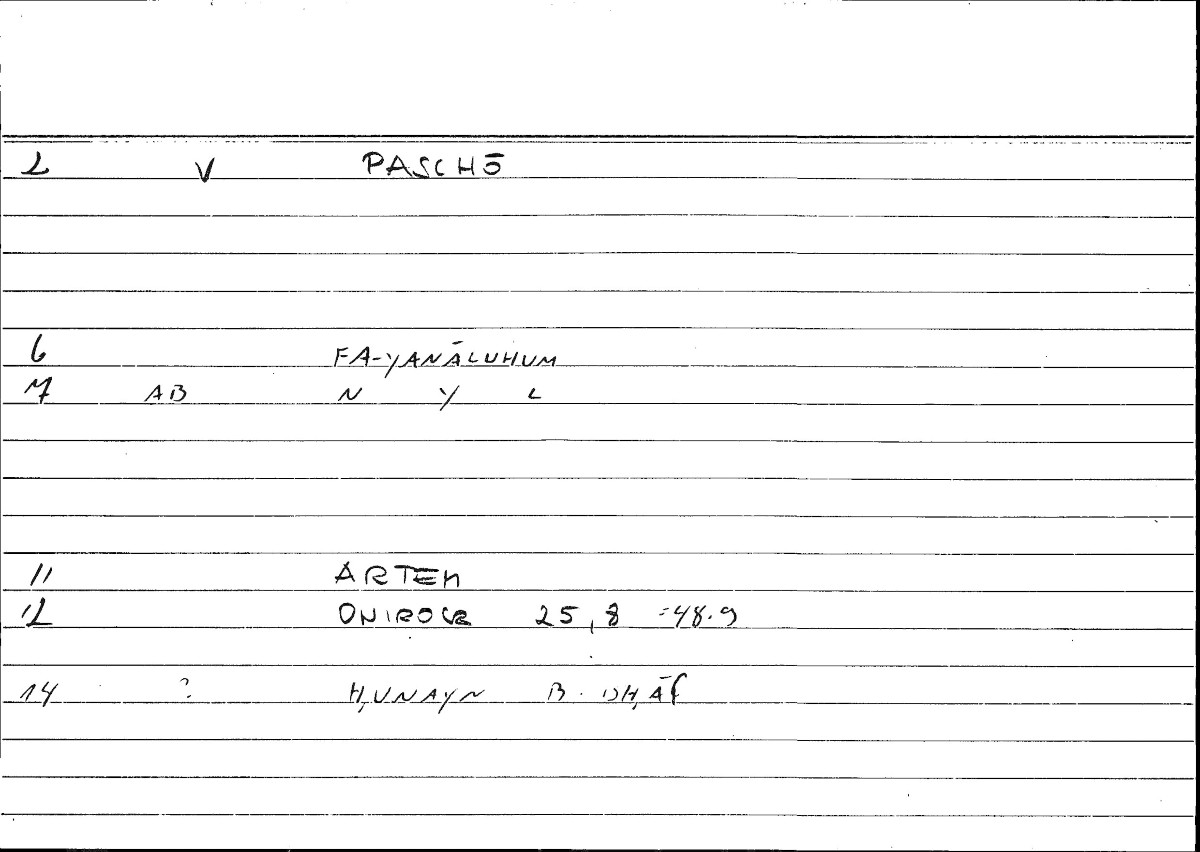 2 V PASCHŌ
6 FA-YANĀLUHUM
7 AB N Y L
11 ARTEM
12 ONIROCR 25,8 =48.9
14 ? H,UNAYN B. ISH,Āf